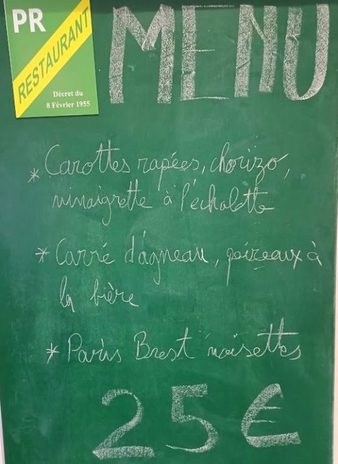 PR
RESTAURANT
Décret du
8 Février 1955
MENU
* Carottes rapées, chorizo,
vinaigrette à l'échalotte
* Carré d'agneau, poireaux à
la bière
* Paris Brest noisettes
25€